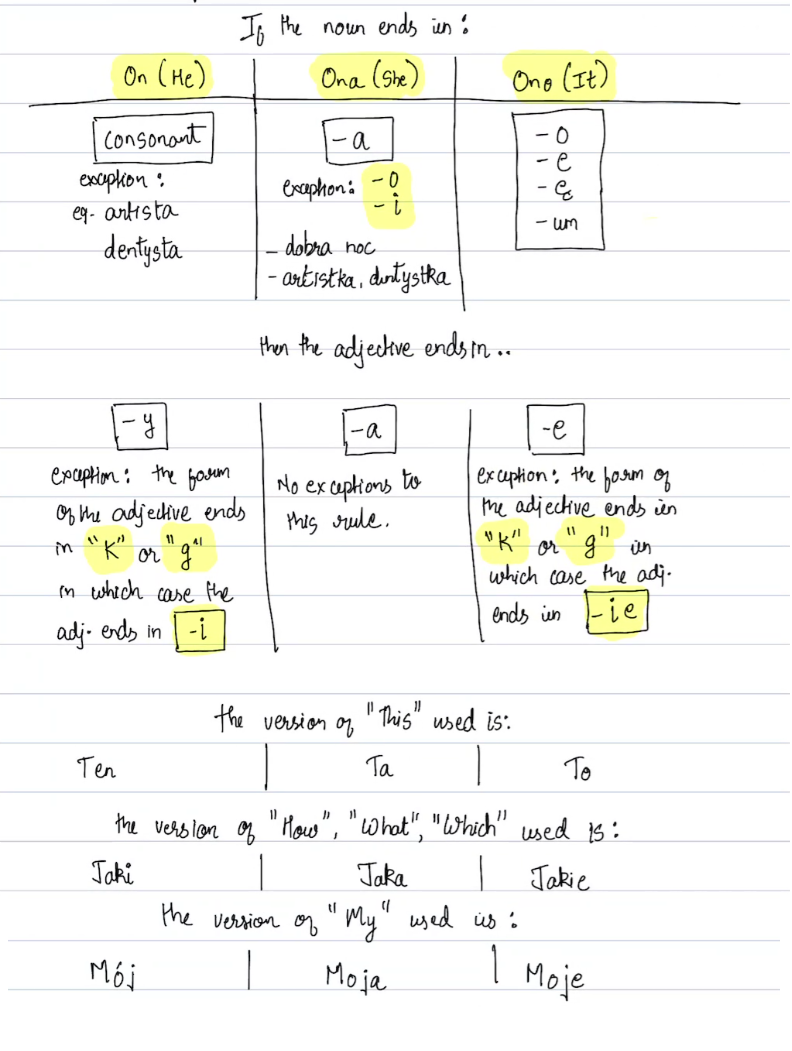 If the noun ends in :
On (He)
Ona (She)
Ono (It)
Consonant
exception :
eg- artista
dentysta
-a
exception: -o
-i
- dobra noc
- artistka, dentystka
-o
-e
-ę
-um
then the adjective ends in ..
-y
exception: the form
of the adjective ends
in "K" or "g"
in which case the
adj- ends in -i
-a
No exceptions to
this rule.
-e
exception: the form of
the adjective ends in
"K" or "g" in
which case the adj-
ends in -ie
the version of "This" used is:
Ten | Ta | To
the version of "How", "What", "Which" used is :
Jaki | Jaka | Jakie
the version of "My" used is :
Mój | Moja | Moje